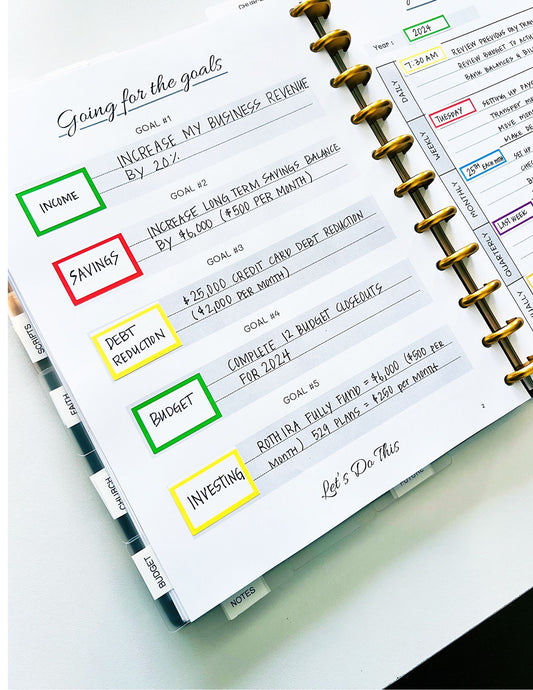 Going for the goals
GOAL #1
INCOME
INCREASE MY BUSINESS REVENUE
BY 20%
GOAL #2
SAVINGS
INCREASE LONG TERM SAVINGS BALANCE
BY $6,000 ($500 PER MONTH)
GOAL #3
DEBT
REDUCTION
$25,000 CREDIT CARD DEBT REDUCTION
($2,000 PER MONTH)
GOAL #4
BUDGET
COMPLETE 12 BUDGET CLOSEOUTS
FOR 2024
GOAL #5
INVESTING
ROTH IRA FULLY FUND = $6,000 ($500 PER
MONTH) 529 PLANS = $250 PER MONTH
Let's Do This
2
SCRIPTS
FAITH
CHURCH
BUDGET
NOTES
FUTURE
Year: 2024
DAILY
7:30 AM
REVIEW PREVIOUS DAY
REVIEW BUDGET TO
BANK BALANCES &
WEEKLY
TUESDAY
SETTING UP
TRANSFER
MOVE
MAKE
MONTHLY
25TH EACH MONTH
SET UP
QUARTERLY
LAST WEEK